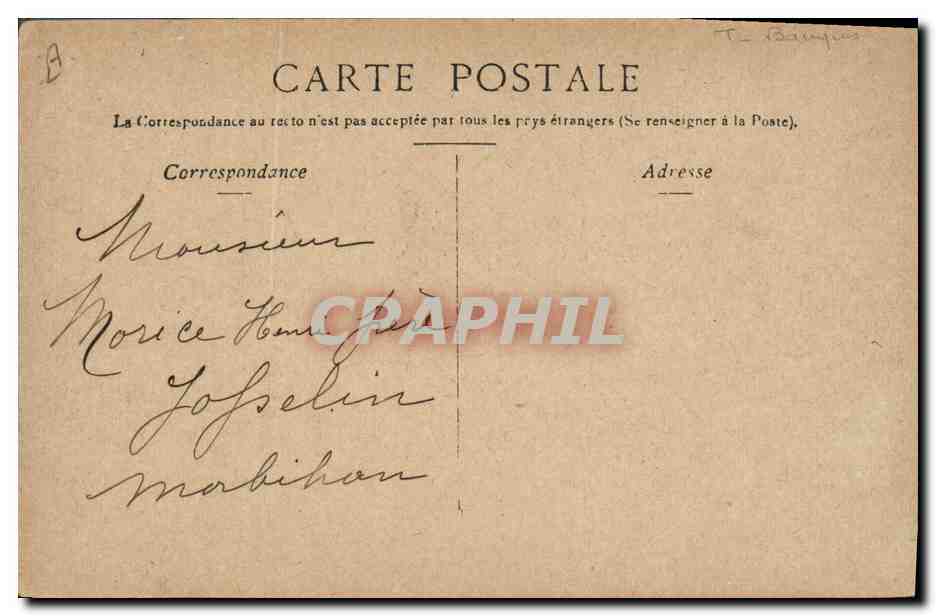 CARTE POSTALE
La Correspondance au recto n'est pas acceptée par tous les pays étrangers (Se renseigner à la Poste).
Correspondance
Adresse
Monsieur
Morice Henri frère
Josselin
Morbihan
CPAPHIL